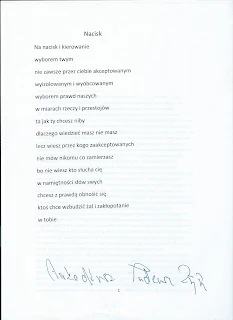 Nacisk
Na nacisk i kierowanie
wyborem twym
nie zawsze przez ciebie akceptowanym
wyizolowanym i wyobcowanym
wyborem prawd naszych
w miarach rzeczy i przestojów
ta jak ty chcesz niby
dlaczego wiedzieć masz nie masz
lecz wiesz przez kogo zaakceptowanych
nie mów nikomu co zamierzasz
bo nie wiesz kto słucha cię
w namiętności słów swych
chcesz z prawdą obnosić się
ktoś chce wzbudzić żal i zakłopotanie
w tobie